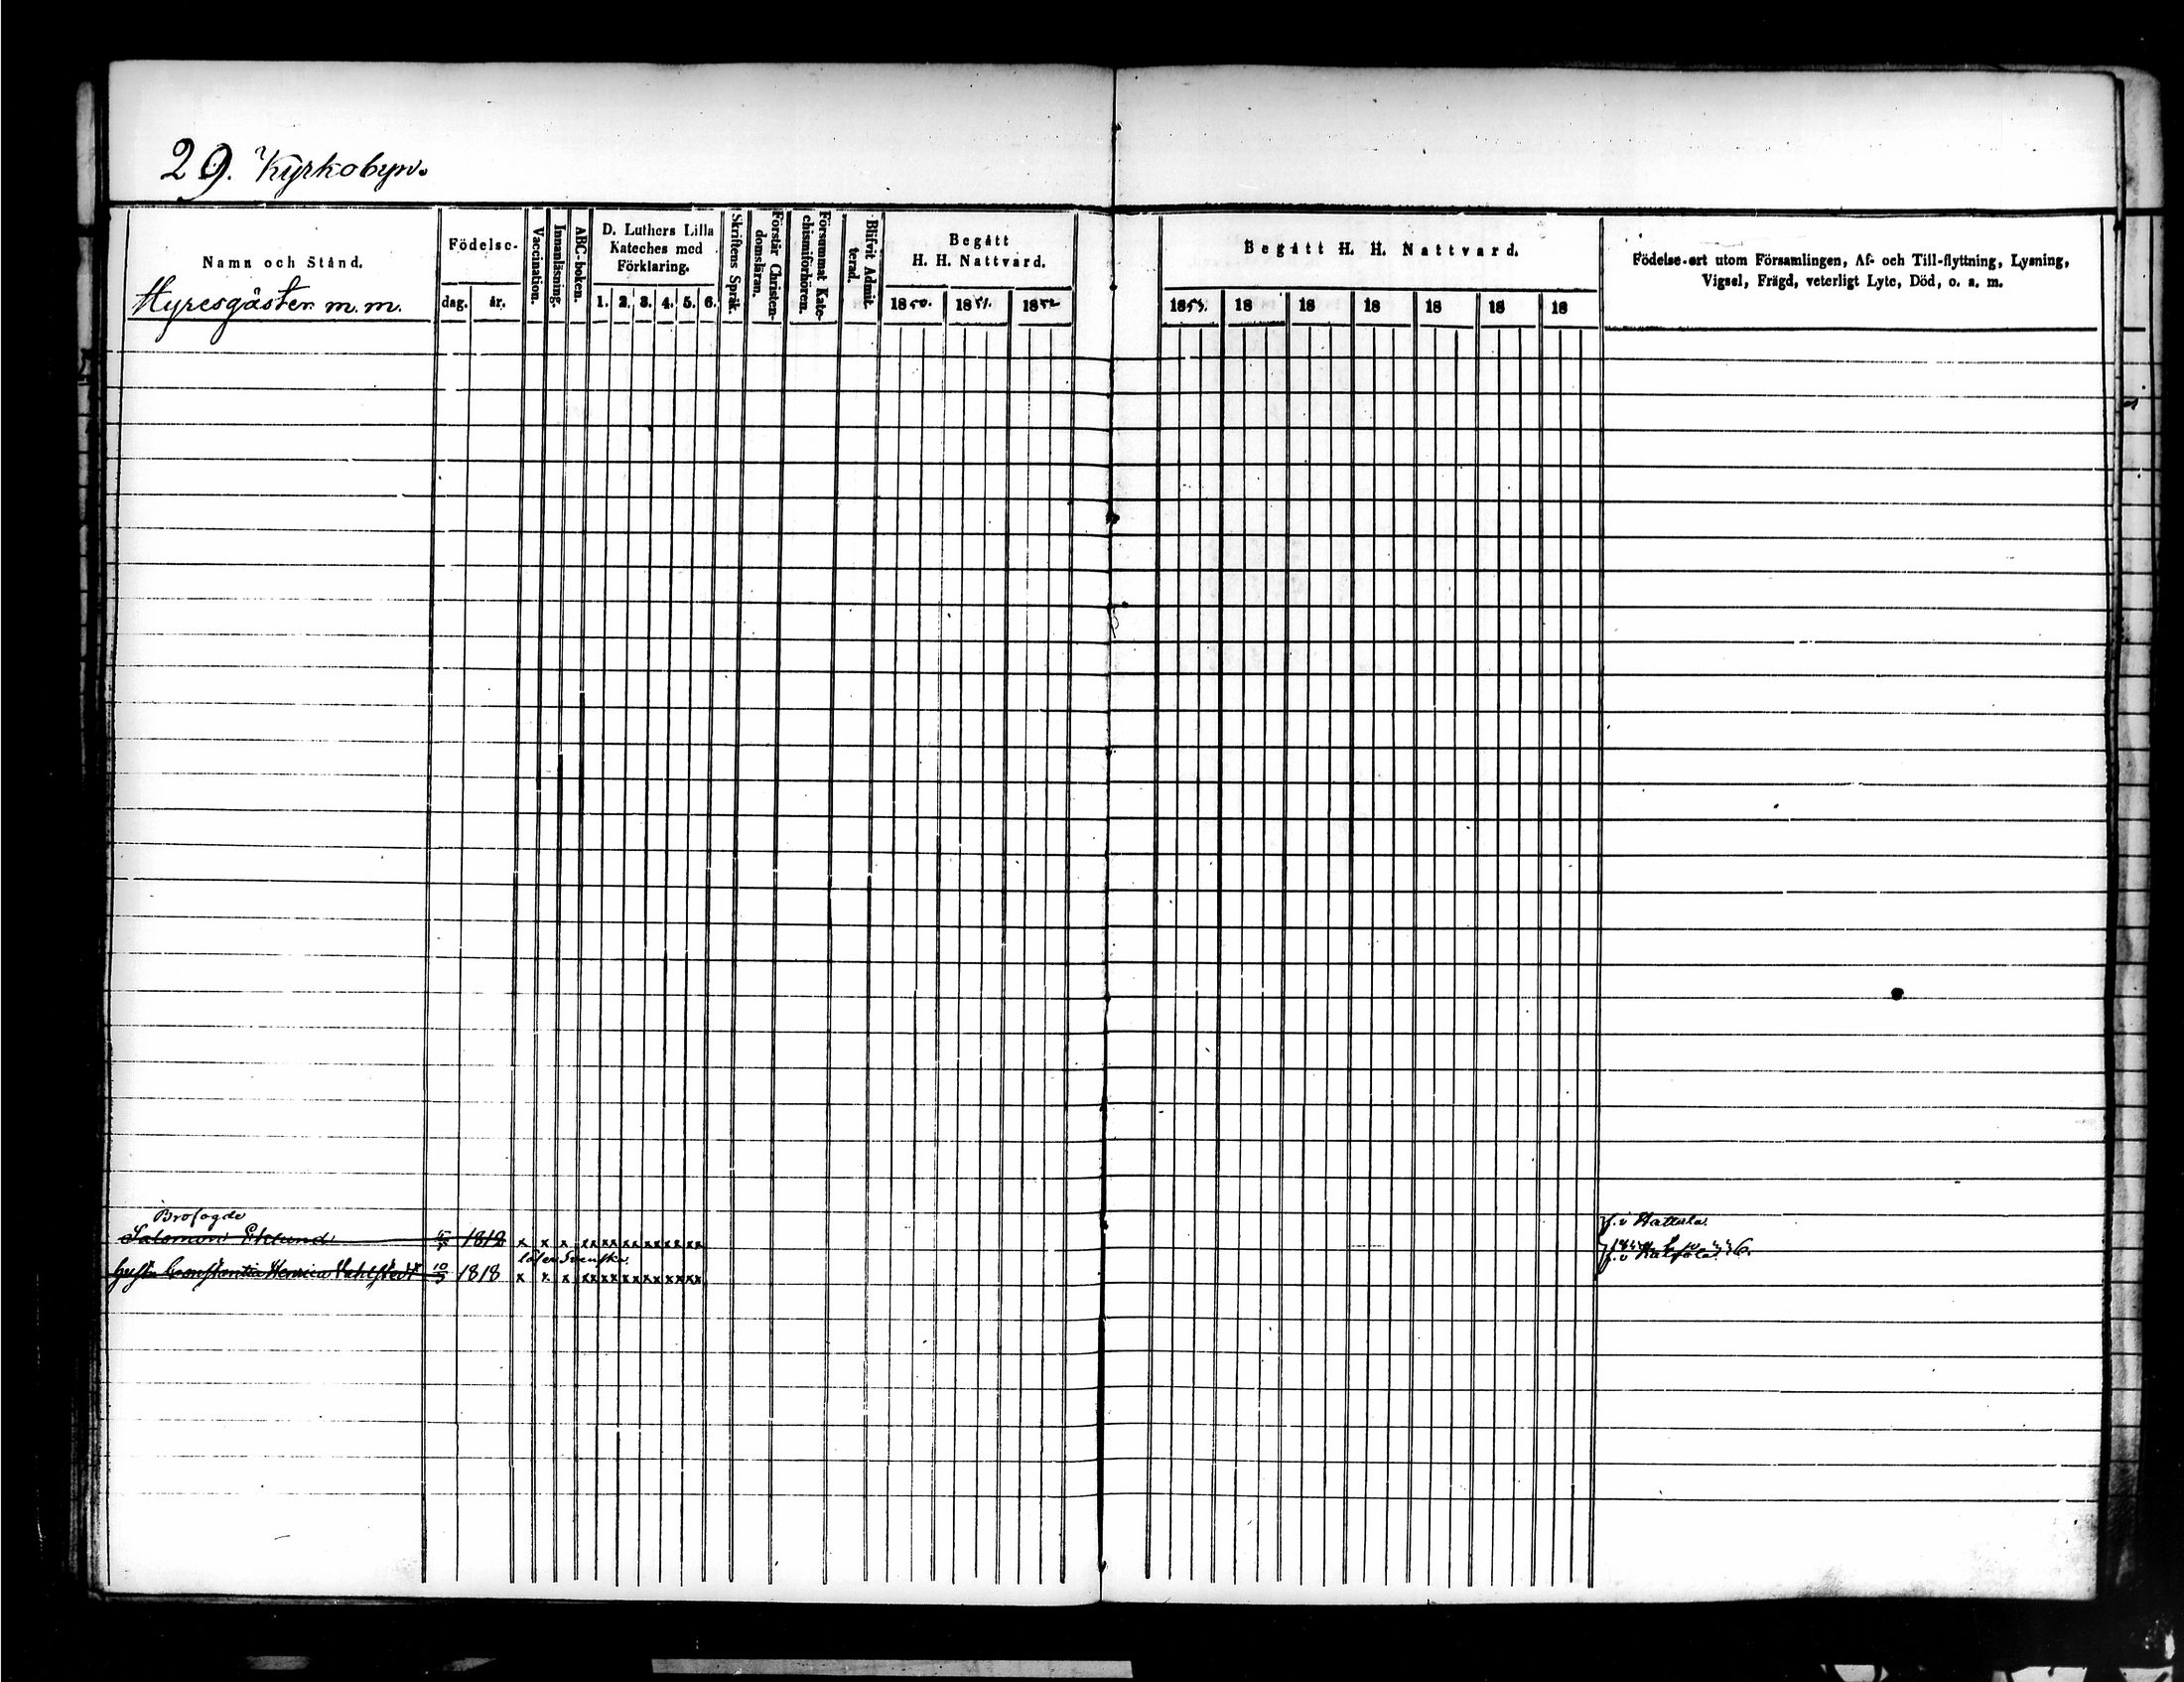 29. Kyrkobyn.
Namn och Stånd.
Hyresgäster m. m.
Födelse-
dag. år.
Vaccination.
Innanläsning.
ABC-boken.
D. Luthers Lilla
Kateches med
Förklaring.
1. 2. 3. 4. 5. 6.
Skriftens Språk.
Förstår Christen-
domsläran.
Försummat Kate-
chismiförhören.
Blifvit Admit-
terad.
Begått
H. H. Nattvard.
1850. 1851. 1852
Begått H. H. Nattvard.
1853. 18 18 18 18 18 18
Födelse-ort utom Församlingen, Af- och Till-flyttning, Lysning,
Vigsel, Frägd, veterligt Lyte, Död, o. s. m.
Brofogde
Salomon Eklund 1812 x x x xx xx xx xx xx xx
f. i Hattula
läser Svenska.
Hustru Constantia Henrica Wahlstedt 10 1818 x x x xx xx xx xx xx xx